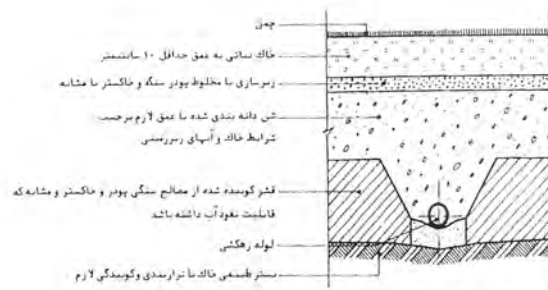 چمن
خاک نباتی به عمق حداقل ۱۰ سانتیمتر
زیرسازی با مخلوط پودر سنگ و خاکستر یا مشابه
شن دانه بندی شده با عمق لازم برحسب
شرایط خاک و آبهای زیرزمینی
قشر کوبیده شده از مصالح سنگی پودر و خاکستر و مشابه که
قابلیت نفوذ آب داشته باشد
لوله زهکشی
بستر طبیعی خاک با ترازبندی و کوبیدگی لازم